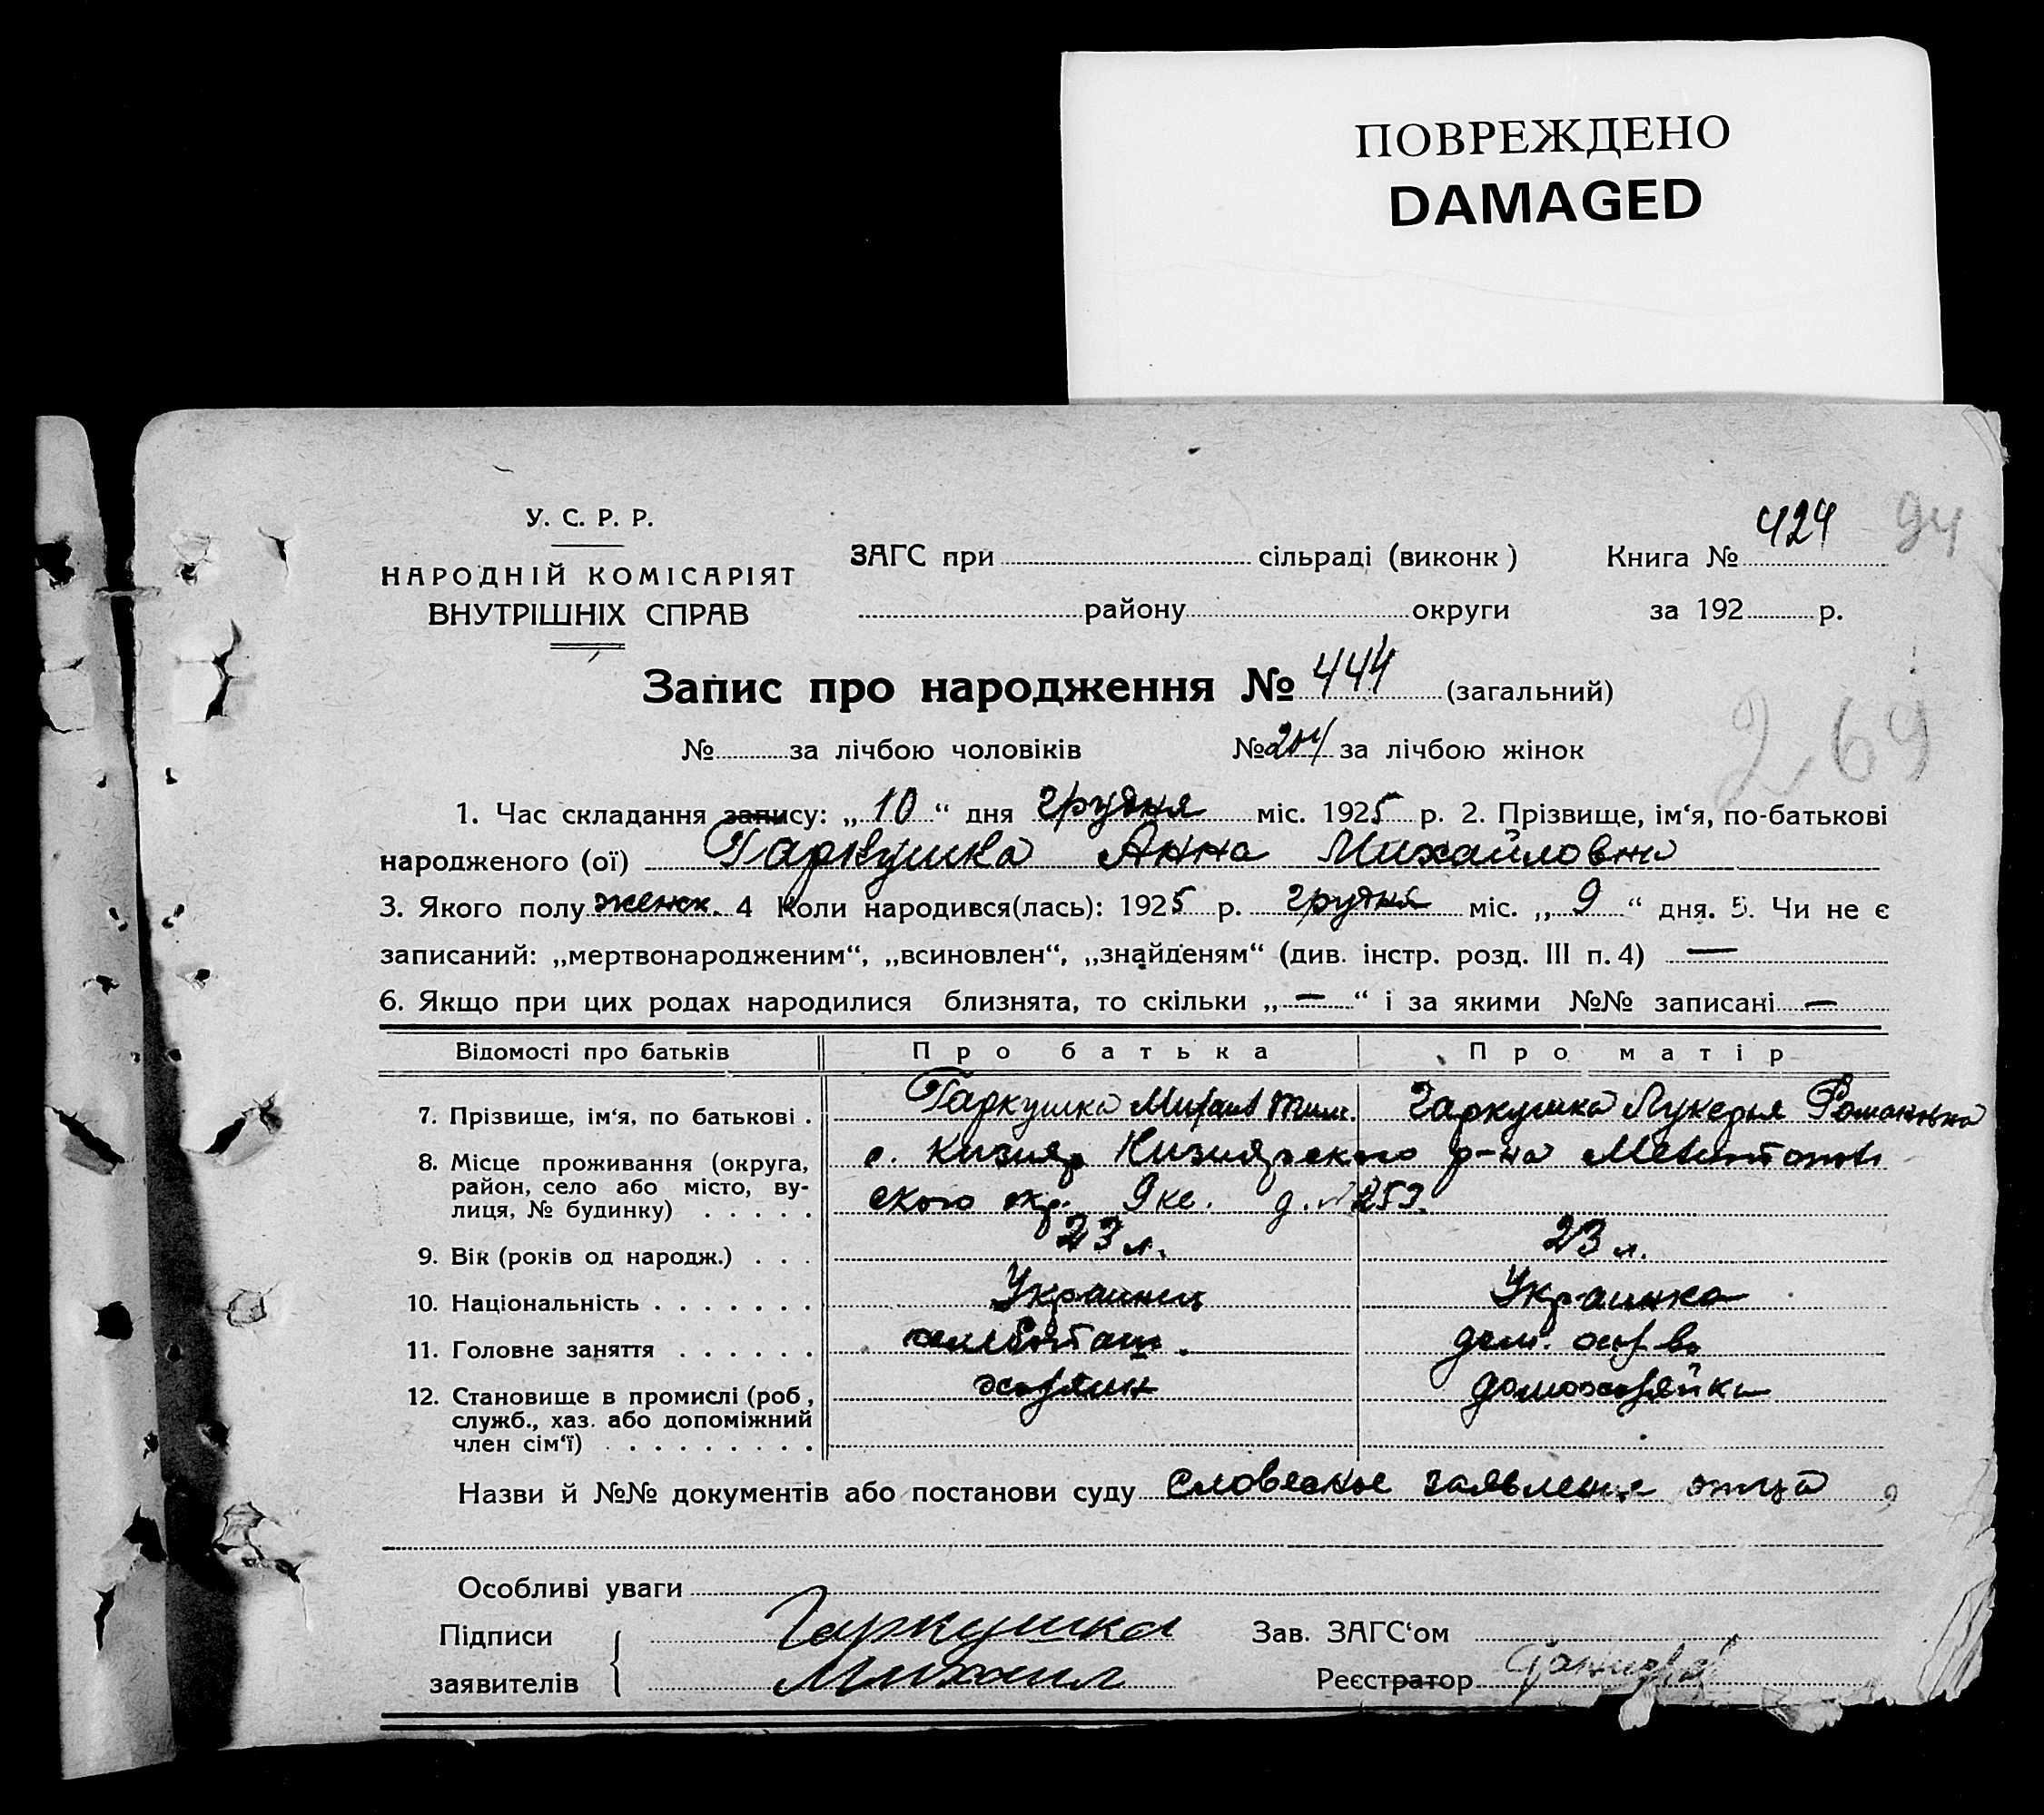 ПОВРЕЖДЕНО
DAMAGED
У. С. Р. Р.
НАРОДНІЙ КОМІСАРІЯТ
ВНУТРІШНІХ СПРАВ
ЗАГС при сільраді (виконк)
Книга № 424 94
району округи за 192 р.
Запис про народження № 444 (загальний)
269
№ за лічбою чоловіків № 204 за лічбою жінок
1. Час складання запису: „10“ дня грудня міс. 1925 р. 2. Прізвище, ім‘я, по-батькові
народженого (ої) Гаркушка Анна Михайловна
3. Якого полу женск. 4 Коли народився(лась): 1925 р. грудня міс. „9“ дня. 5. Чи не є
записаний: „мертвонародженим“, „всиновлен“, „знайденям“ (див. інстр. розд. III п. 4) —
6. Якщо при цих родах народилися близнята, то скільки „—“ і за якими №№ записані —
Відомості про батьків Про батька Про матір
7. Прізвище, ім‘я, по батькові . Гаркушка Михаил Тим. Гаркушка Лукерья Романовна
8. Місце проживання (округа, с. Кизияр Кизиярского р-на Мелитополь
район, село або місто, ву- ского окр. д. № 253.
лиця, № будинку) . . . . .
9. Вік (років од народж.) . . . 23 л. 23 л.
10. Національність . . . . . . . Украинец Украинка
11. Головне заняття . . . . . . хлебопаш. дом. хоз-во
12. Становище в промислі (роб, хозяин домохозяйка
служб., хаз. або допоміжний
член сім‘ї) . . . . . . . . .
Назви й №№ документів або постанови суду словесное заявление отца
Особливі уваги
Підписи Гаркушка Зав. ЗАГС‘ом
заявителів Михаил Реєстратор